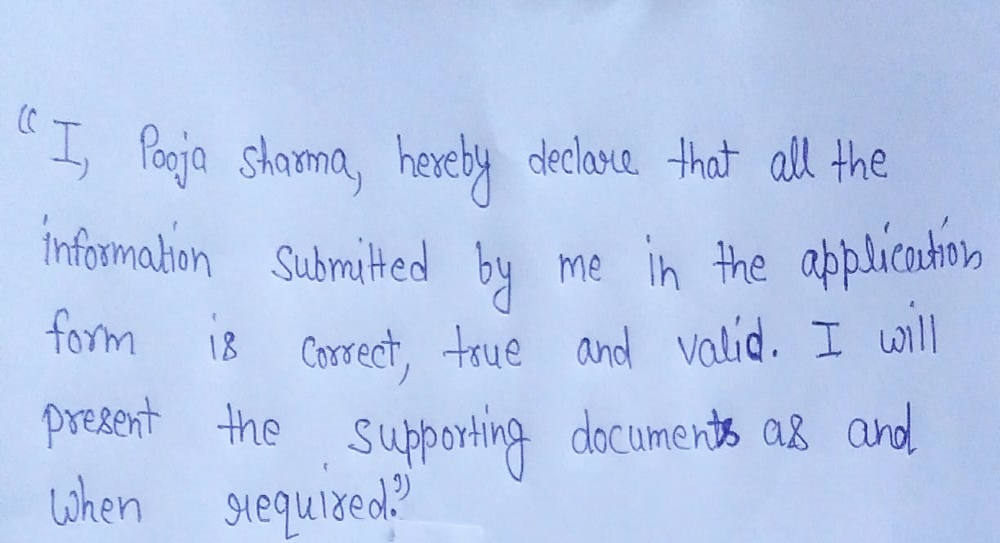 “I, Pooja Sharma, hereby declare that all the
information submitted by me in the application
form is correct, true and valid. I will
present the supporting documents as and
when required.”